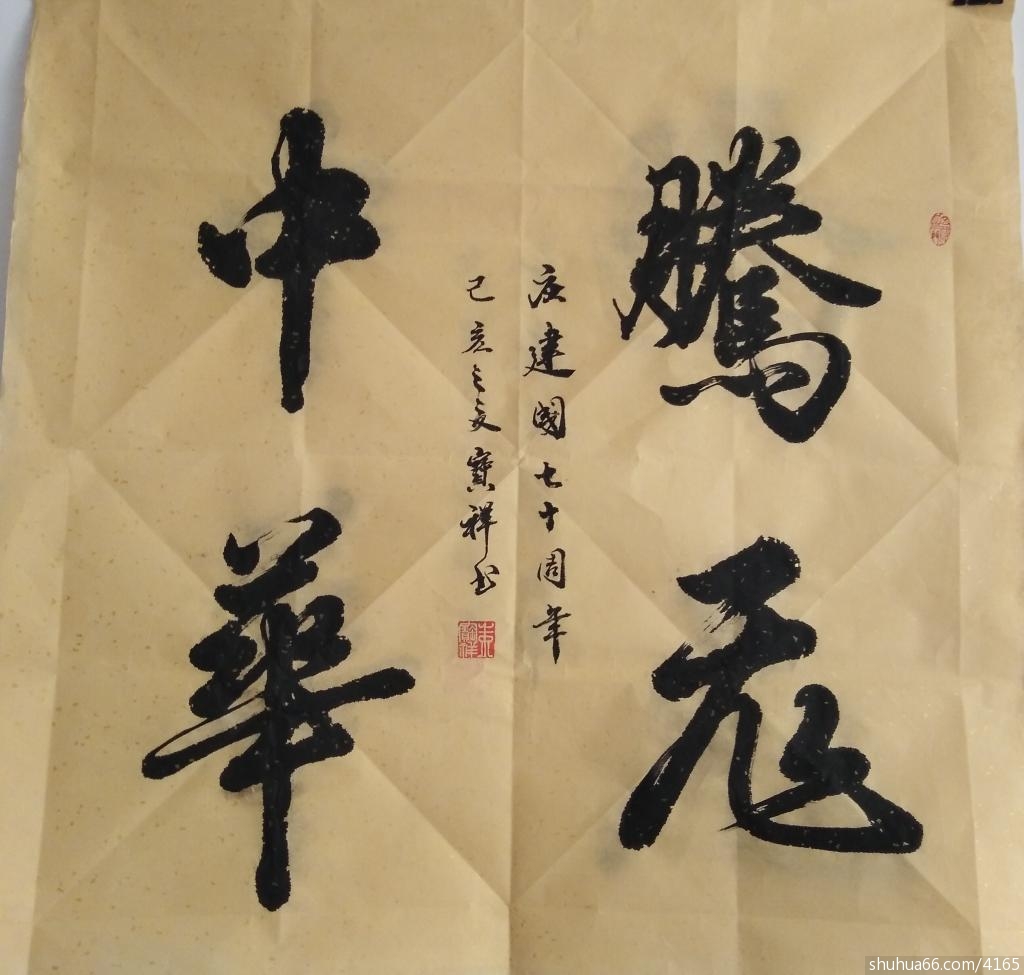 騰飛
中華
庆建國七十周年
己亥之夏寶祥书
shuhua66.com/4165